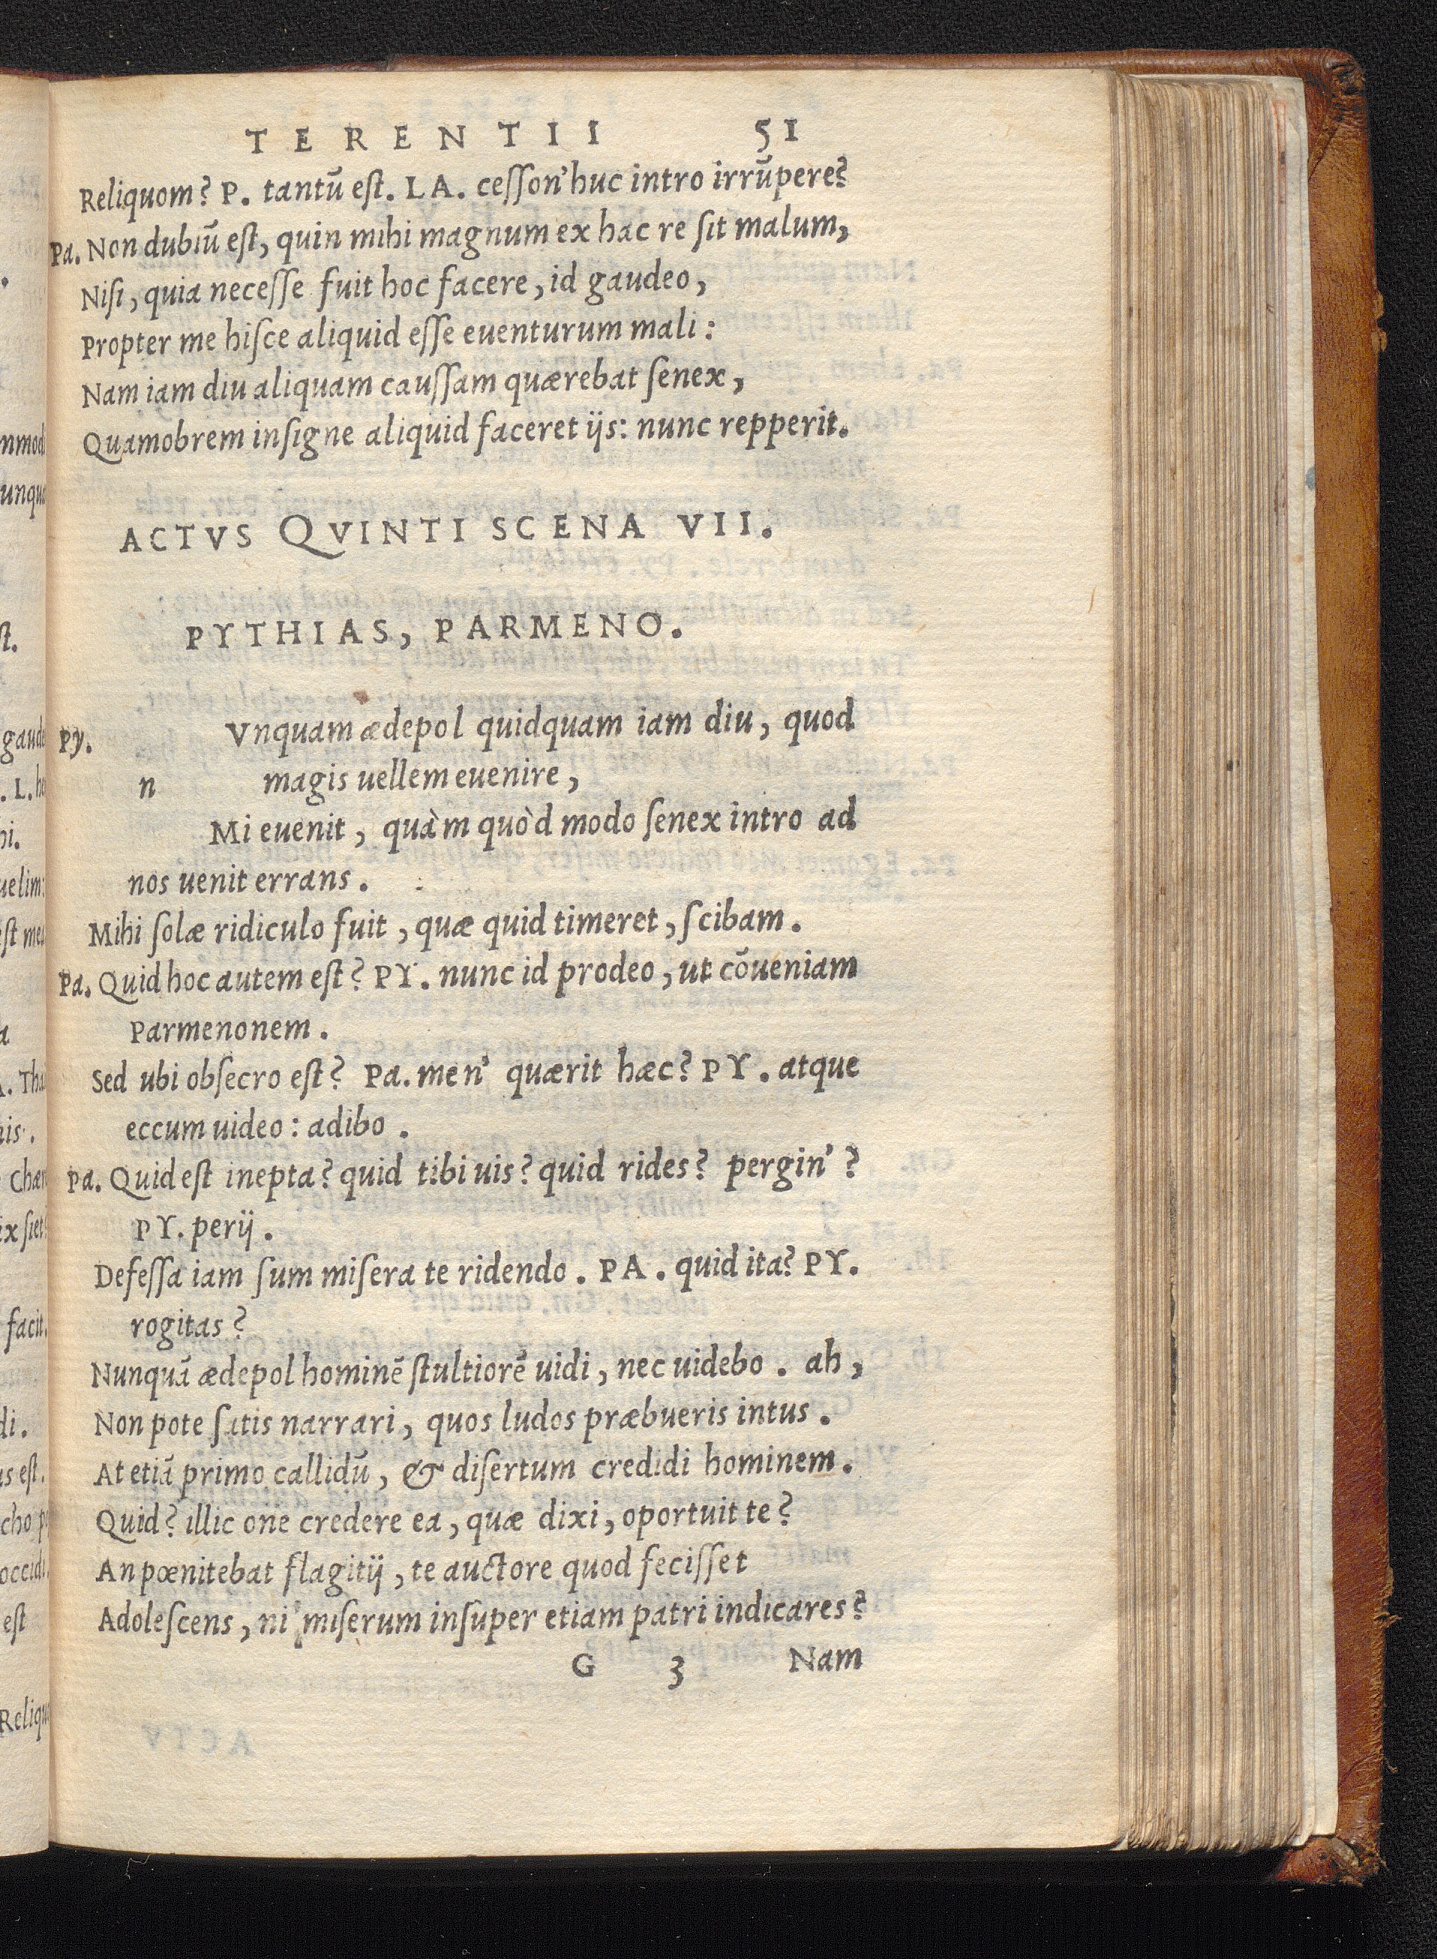 TERENTII 51
Reliquom? P. tantū est. LA. cesson' huc intro irrūpere?
Pa. Non dubiū est, quin mihi magnum ex hac re sit malum,
Nisi, quia necesse fuit hoc facere, id gaudeo,
Propter me hisce aliquid esse euenturum mali:
Nam iam diu aliquam caussam quærebat senex,
Quamobrem insigne aliquid faceret ijs: nunc repperit.
ACTVS QVINTI SCENA VII.
PYTHIAS, PARMENO.
Py. Vnquam ædepol quidquam iam diu, quod
n magis uellem euenire,
Mi euenit, quàm quòd modo senex intro ad
nos uenit errans.
Mihi solæ ridiculo fuit, quæ quid timeret, scibam.
Pa. Quid hoc autem est? PY. nunc id prodeo, ut cōueniam
Parmenonem.
Sed ubi obsecro est? Pa. men' quærit hæc? PY. atque
eccum uideo: adibo.
Pa. Quid est inepta? quid tibi uis? quid rides? pergin'?
PY. perij.
Defessa iam sum misera te ridendo. PA. quid ita? PY.
rogitas?
Nunquā ædepol hominē stultiorē uidi, nec uidebo. ah,
Non pote satis narrari, quos ludos præbueris intus.
At etiā primo callidū, & disertum credidi hominem.
Quid? illic one credere ea, quæ dixi, oportuit te?
An pœnitebat flagitij, te auctore quod fecisset
Adolescens, ni miserum insuper etiam patri indicares?
G 3 Nam